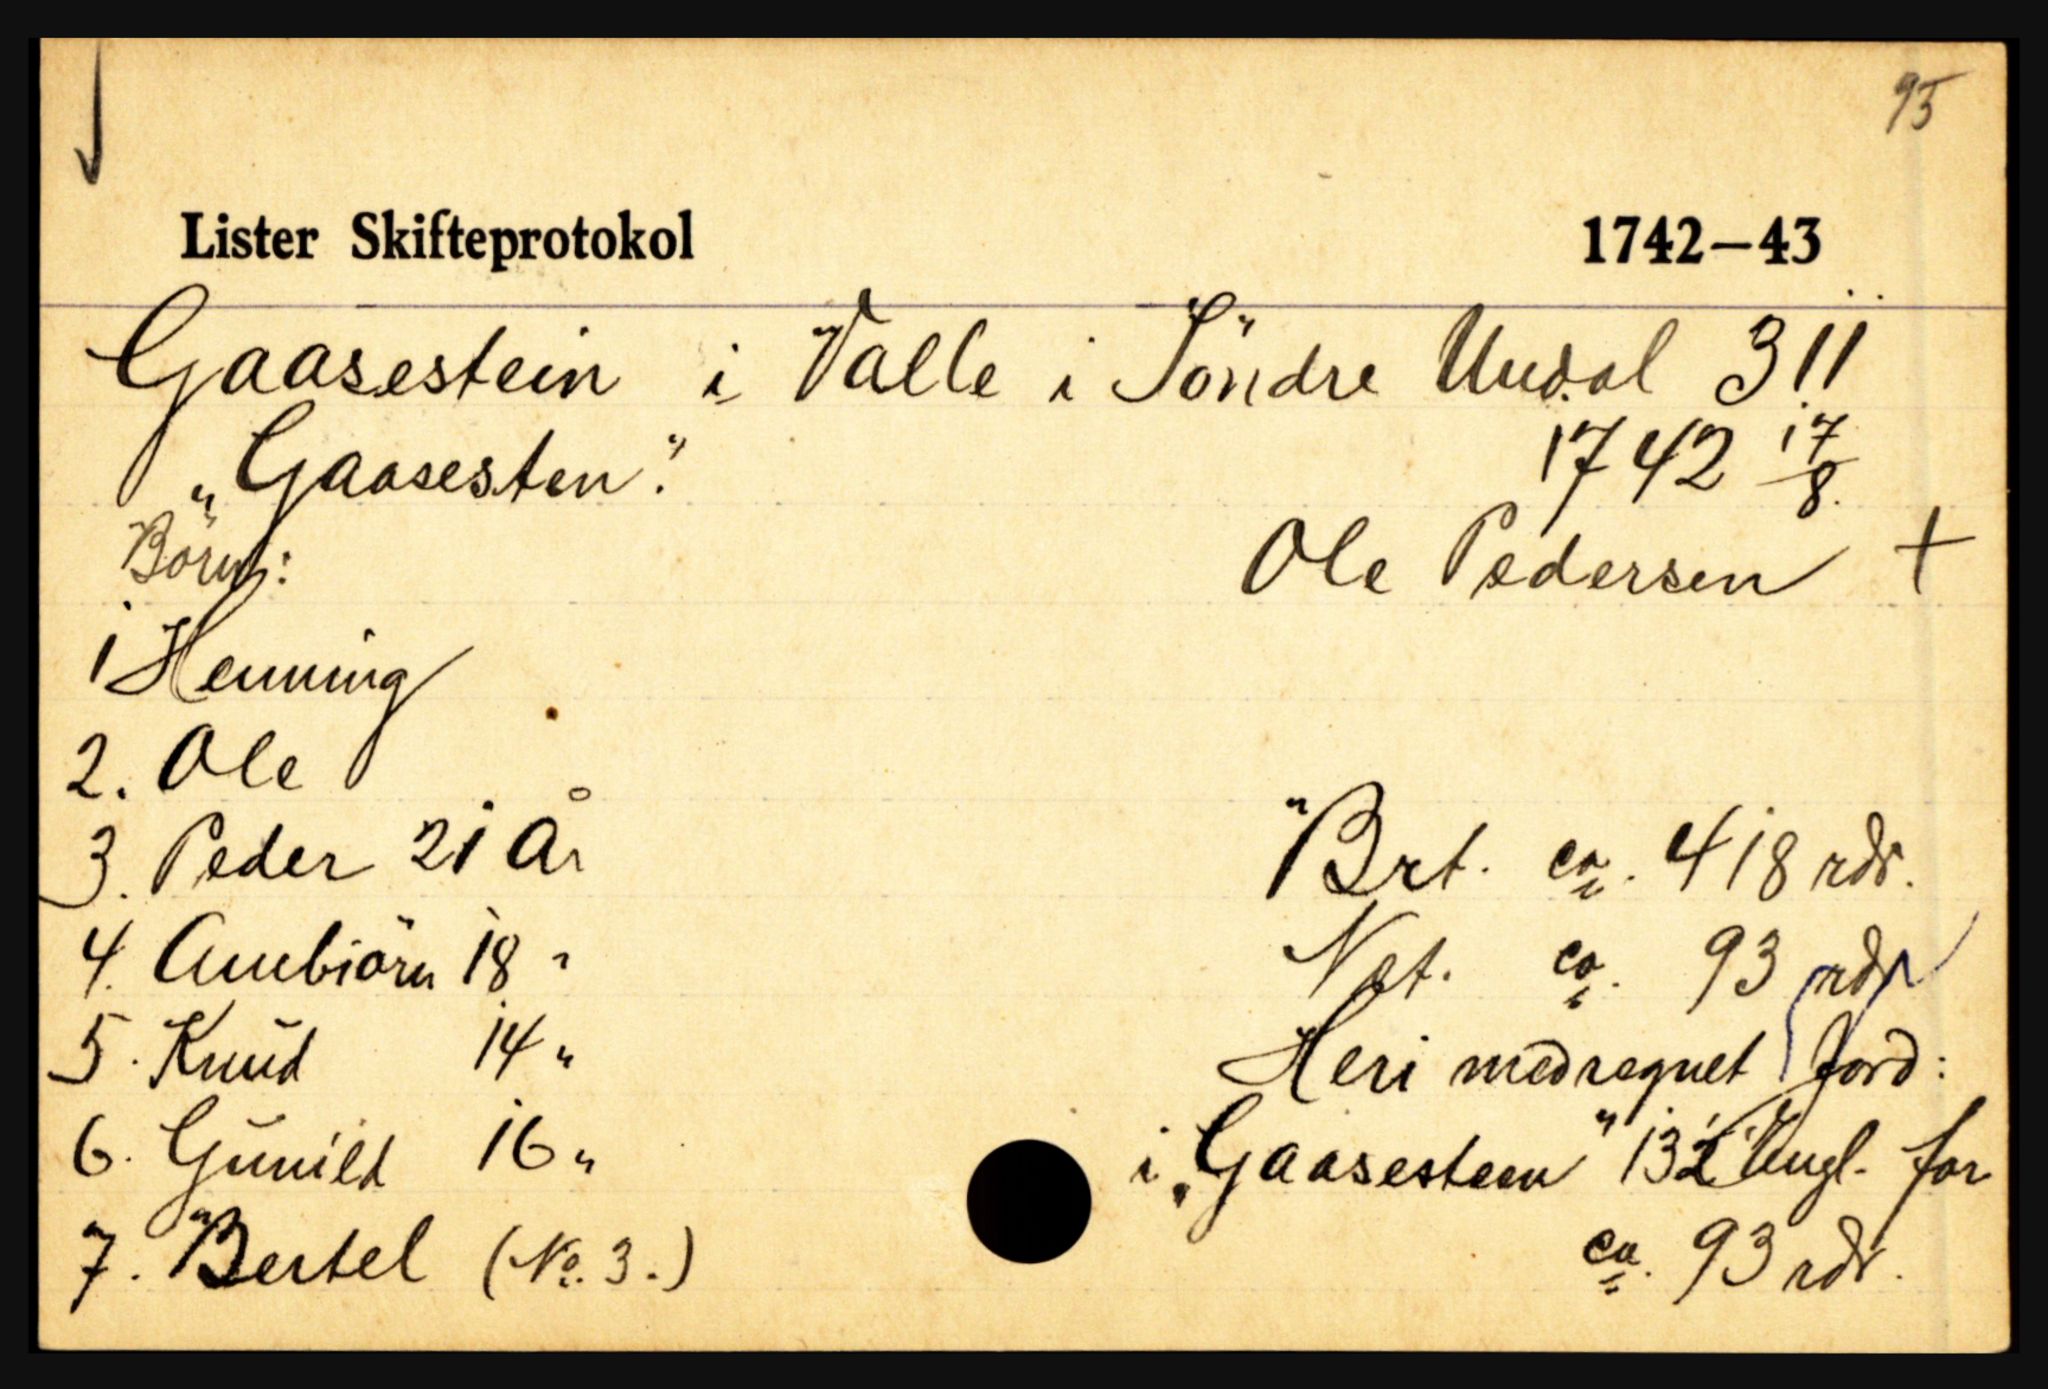 95
Lister Skifteprotokol 1742–43
Gaasestein i Valle i Söndre Undal 311
„Gaasesten". 1742 17/8.
Börn: Ole Pedersen +
1 Henning
2. Ole
3. Peder 21 År Brt. ca. 418 rdr.
4. Aunbiörn 18 " Net. ca. 93 rdr
5. Knud 14 " Heri medregnet Jord:
6. Gunild 16 " i „Gaasesteen" 132 Engl. for
7. Bertel (No. 3.) ca. 93 rdr.